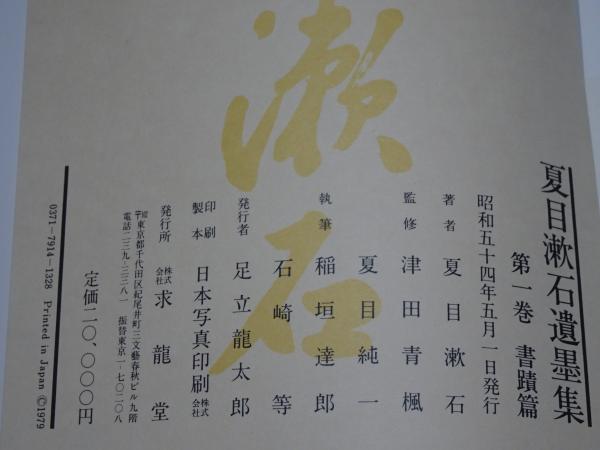 漱石
夏目漱石遺墨集
第一巻 書蹟篇
昭和五十四年五月一日発行
著者 夏目漱石
監修 津田青楓
夏目純一
執筆 稲垣達郎
石崎等
発行者 足立龍太郎
印刷 製本 日本写真印刷 株式会社
発行所 株式会社 求龍堂
東京都千代田区紀尾井町三文藝春秋ビル九階
電話二三九‐三三八一 振替東京一‐七〇二〇八
定価二〇、〇〇〇円
0371-7914-1328 Printed in Japan ©1979